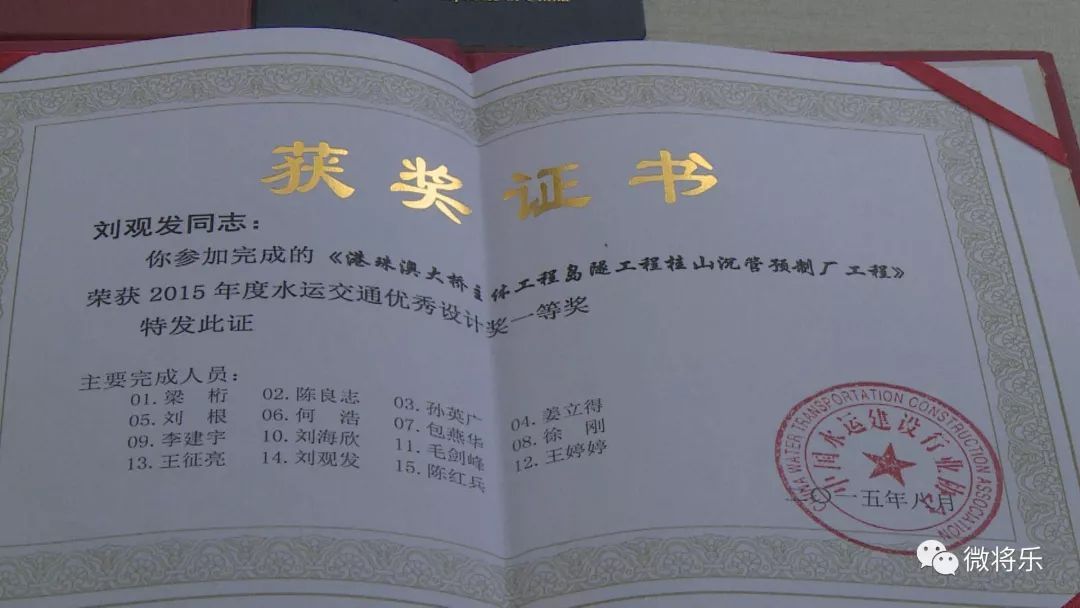 获奖证书
刘观发同志：
你参加完成的《港珠澳大桥主体工程岛隧工程桂山沉管预制厂工程》
荣获 2015 年度水运交通优秀设计奖一等奖
特发此证
主要完成人员：
01. 梁 桁 02. 陈良志 03. 孙英广 04. 姜立得
05. 刘 根 06. 何 浩 07. 包燕华 08. 徐 刚
09. 李建宇 10. 刘海欣 11. 毛剑峰 12. 王婷婷
13. 王征亮 14. 刘观发 15. 陈红兵
CHINA WATER TRANSPORTATION CONSTRUCTION ASSOCIATION
中国水运建设行业协会
二〇一五年八月
微将乐